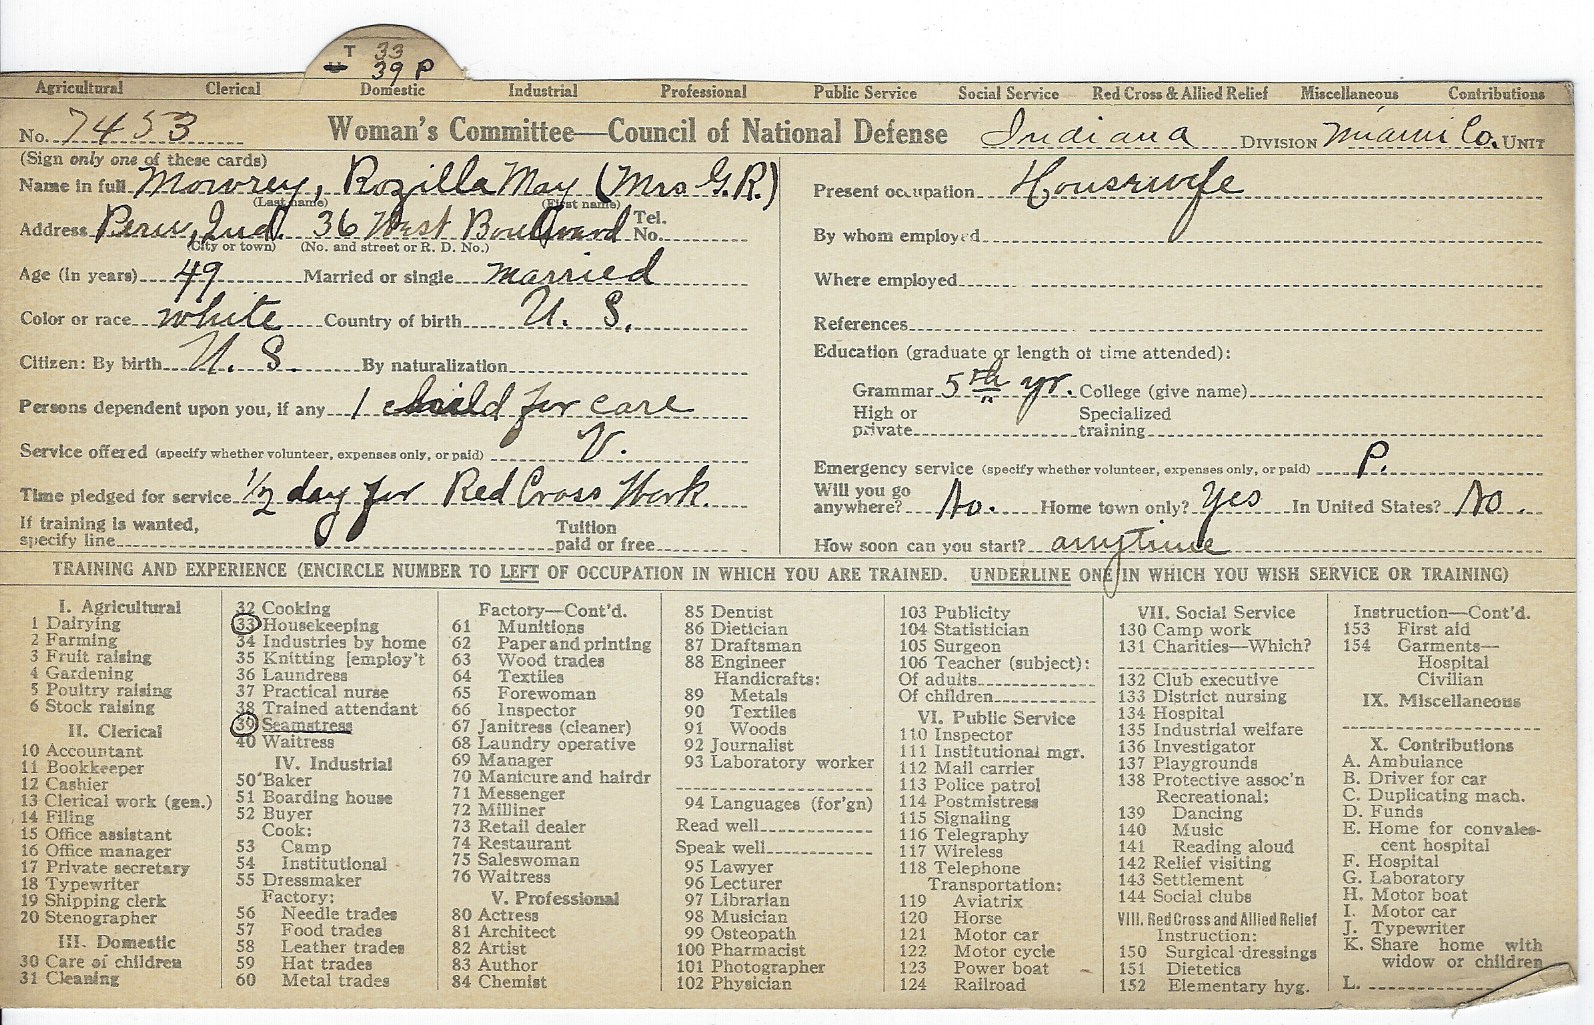 T 33
39 P
Agricultural Clerical Domestic Industrial Professional Public Service Social Service Red Cross & Allied Relief Miscellaneous Contributions
No. 7453 Woman's Committee—Council of National Defense Indiana DIVISION Miami Co. UNIT
(Sign only one of these cards)
Name in full Mowrey, Rozilla May (Mrs G.R.)
(Last name) (First name)
Address Peru, Ind. 36 West Boulevard Tel. No.
(City or town) (No. and street or R. D. No.)
Age (in years) 49 Married or single married
Color or race white Country of birth U. S.
Citizen: By birth U. S. By naturalization
Persons dependent upon you, if any 1 child for care
Service offered (specify whether volunteer, expenses only, or paid) V.
Time pledged for service 1/2 day for Red Cross Work.
If training is wanted, specify line Tuition paid or free
Present occupation Housewife
By whom employed
Where employed
References
Education (graduate or length of time attended):
Grammar 5th yr. College (give name)
High or private Specialized training
Emergency service (specify whether volunteer, expenses only, or paid) P.
Will you go anywhere? No. Home town only? Yes In United States? No.
How soon can you start? anytime
TRAINING AND EXPERIENCE (ENCIRCLE NUMBER TO LEFT OF OCCUPATION IN WHICH YOU ARE TRAINED. UNDERLINE ONE IN WHICH YOU WISH SERVICE OR TRAINING)
I. Agricultural
1 Dairying
2 Farming
3 Fruit raising
4 Gardening
5 Poultry raising
6 Stock raising
II. Clerical
10 Accountant
11 Bookkeeper
12 Cashier
13 Clerical work (gen.)
14 Filing
15 Office assistant
16 Office manager
17 Private secretary
18 Typewriter
19 Shipping clerk
20 Stenographer
III. Domestic
30 Care of children
31 Cleaning
32 Cooking
33 Housekeeping
34 Industries by home
35 Knitting [employ't
36 Laundress
37 Practical nurse
38 Trained attendant
39 Seamstress
40 Waitress
IV. Industrial
50 Baker
51 Boarding house
52 Buyer
Cook:
53 Camp
54 Institutional
55 Dressmaker
Factory:
56 Needle trades
57 Food trades
58 Leather trades
59 Hat trades
60 Metal trades
Factory—Cont'd.
61 Munitions
62 Paper and printing
63 Wood trades
64 Textiles
65 Forewoman
66 Inspector
67 Janitress (cleaner)
68 Laundry operative
69 Manager
70 Manicure and hairdr
71 Messenger
72 Milliner
73 Retail dealer
74 Restaurant
75 Saleswoman
76 Waitress
V. Professional
80 Actress
81 Architect
82 Artist
83 Author
84 Chemist
85 Dentist
86 Dietician
87 Draftsman
88 Engineer
Handicrafts:
89 Metals
90 Textiles
91 Woods
92 Journalist
93 Laboratory worker
94 Languages (for'gn)
Read well
Speak well
95 Lawyer
96 Lecturer
97 Librarian
98 Musician
99 Osteopath
100 Pharmacist
101 Photographer
102 Physician
103 Publicity
104 Statistician
105 Surgeon
106 Teacher (subject):
Of adults
Of children
VI. Public Service
110 Inspector
111 Institutional mgr.
112 Mail carrier
113 Police patrol
114 Postmistress
115 Signaling
116 Telegraphy
117 Wireless
118 Telephone
Transportation:
119 Aviatrix
120 Horse
121 Motor car
122 Motor cycle
123 Power boat
124 Railroad
VII. Social Service
130 Camp work
131 Charities—Which?
132 Club executive
133 District nursing
134 Hospital
135 Industrial welfare
136 Investigator
137 Playgrounds
138 Protective assoc'n
Recreational:
139 Dancing
140 Music
141 Reading aloud
142 Relief visiting
143 Settlement
144 Social clubs
VIII. Red Cross and Allied Relief
Instruction:
150 Surgical dressings
151 Dietetics
152 Elementary hyg.
Instruction—Cont'd.
153 First aid
154 Garments—
Hospital
Civilian
IX. Miscellaneous
X. Contributions
A. Ambulance
B. Driver for car
C. Duplicating mach.
D. Funds
E. Home for convales-
cent hospital
F. Hospital
G. Laboratory
H. Motor boat
I. Motor car
J. Typewriter
K. Share home with
widow or children
L.